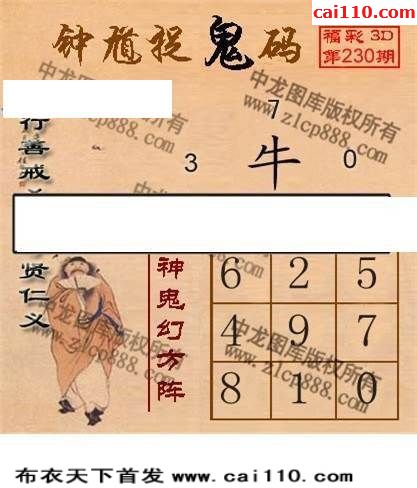 cai110.com
钟馗捉鬼码
福彩3D
第230期
中龙图库版权所有
www.zlcp888.com
7
3 牛 0
行善戒
贤仁义
神鬼幻方阵
6 2 5
4 9 7
8 1 0
中龙图库版权所有
www.zlcp888.com
布衣天下首发 www.cai110.com